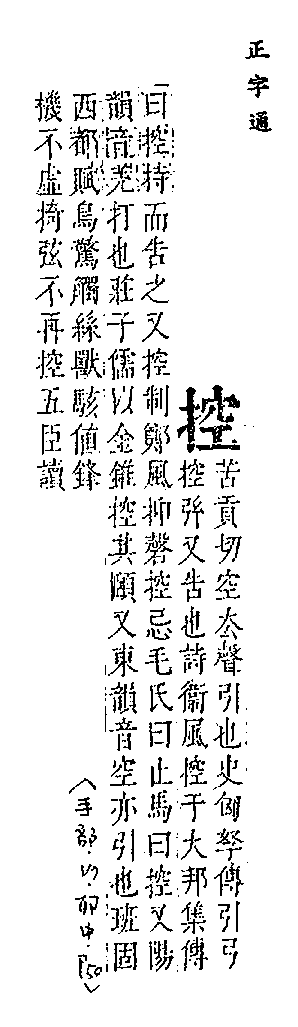 正字通
控
苦貢切空去聲引也史匈奴傳引弓
控弦又告也詩衞風控于大邦集傳
曰控持而告之又控制鄭風抑磬控忌毛氏曰止馬曰控又陽
韻音羌打也莊子儒以金錐控其頤又東韻音空亦引也班固
西都賦鳥驚觸絲獸駭値鋒
機不虛掎弦不再控五臣讀
手部